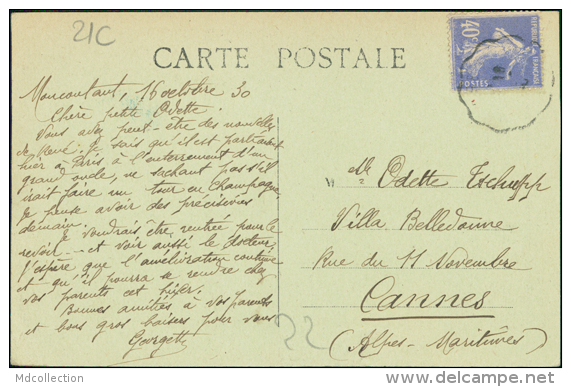 21C
CARTE POSTALE
REPUBLIQUE FRANÇAISE
40c
POSTES
Moncoutant, 16 octobre 30
Chère petite Odette.
Vous avez peut-être des nouvelles
de René. Je sais qu'il est parti avant
hier à Paris à l'enterrement d'un
grand oncle, ne sachant pas s'il
irait faire un tour en Champagne
Je pense avoir des précisions
demain.
Je voudrais être rentrée pour le
revoir -- et voir aussi le docteur.
J'espère que l'amélioration continue
et qu'il pourra se rendre chez
vos parents cet hiver.
Bonnes amitiés à vos parents
et bons gros baisers pour vous
Georgette
Odette
Villa Belledonne
Rue du 11 Novembre
Cannes
(Alpes-Maritimes)
22
Mdcollection
www.delcampe.net